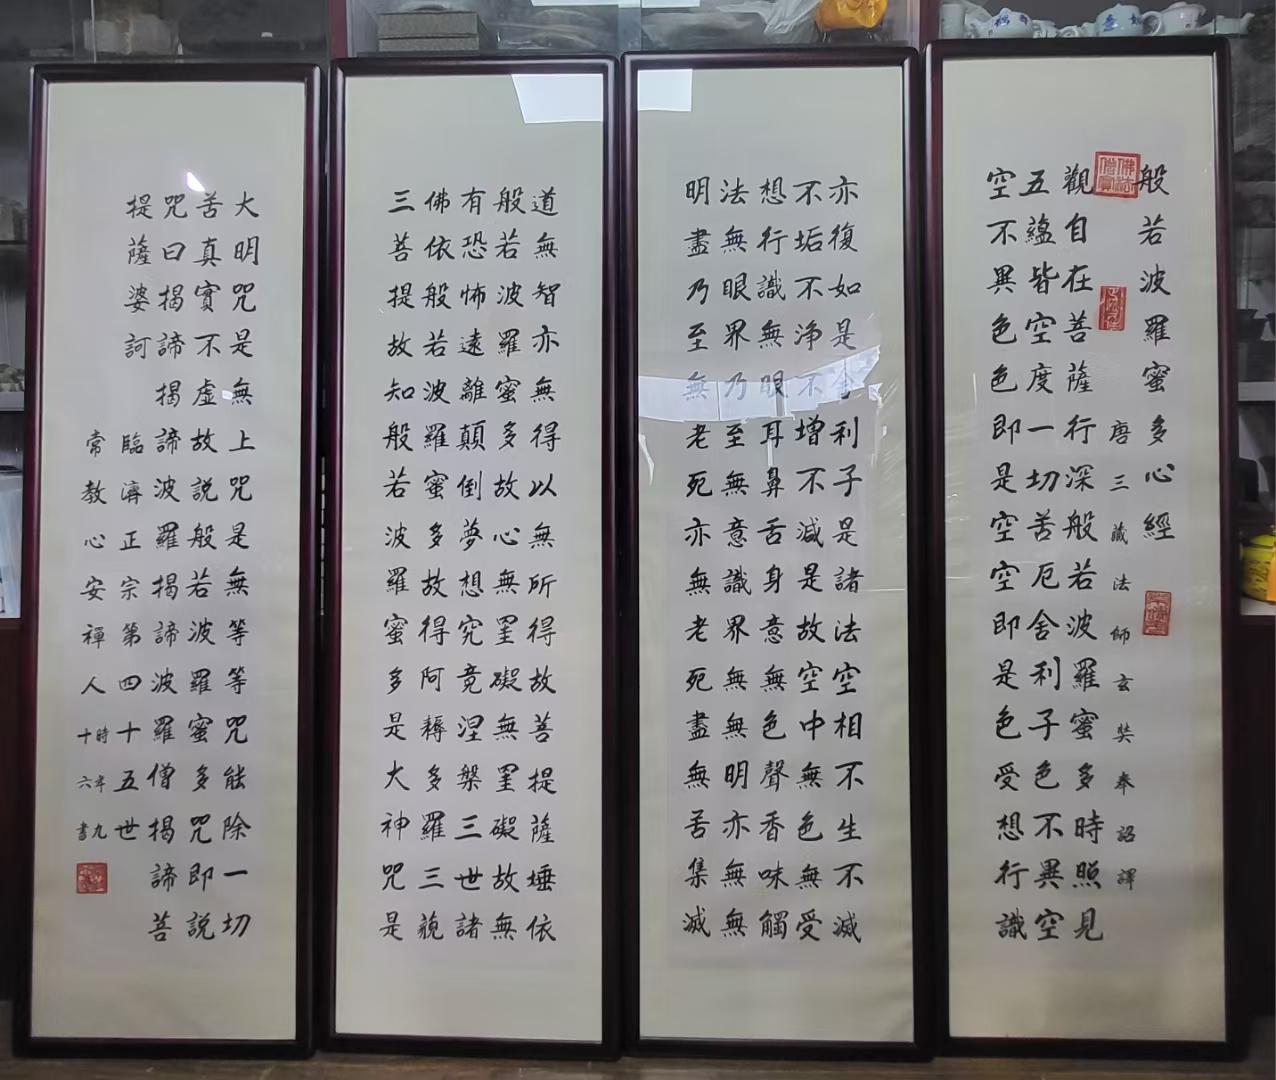 般若波羅蜜多心經
佛法僧寶
唐三藏法師玄奘奉詔譯
觀自在菩薩行深般若波羅蜜多時照見
五蘊皆空度一切苦厄舍利子色不異空
空不異色色即是空空即是色受想行識
亦復如是舍利子是諸法空相不生不滅
不垢不淨不增不減是故空中無色無受
想行識無眼耳鼻舌身意無色聲香味觸
法無眼界乃至無意識界無無明亦無無
明盡乃至無老死亦無老死盡無苦集滅
道無智亦無得以無所得故菩提薩埵依
般若波羅蜜多故心無罣礙無罣礙故無
有恐怖遠離顛倒夢想究竟涅槃三世諸
佛依般若波羅蜜多故得阿耨多羅三藐
三菩提故知般若波羅蜜多是大神咒是
大明咒是無上咒是無等等咒能除一切
苦真實不虛故說般若波羅蜜多咒即說
咒曰揭諦揭諦波羅揭諦波羅僧揭諦菩
提薩婆訶
臨濟正宗第四十五世
常教心安禪人
時年九
十六書